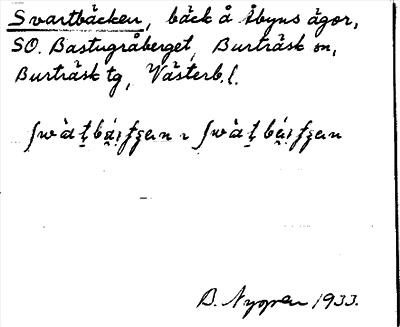 Svartbäcken, bäck å Åbyns ägor,
SO. Bastugråberget, Burträsk sn,
Burträsk tg, Västerb. l.
B. Nygren 1933.